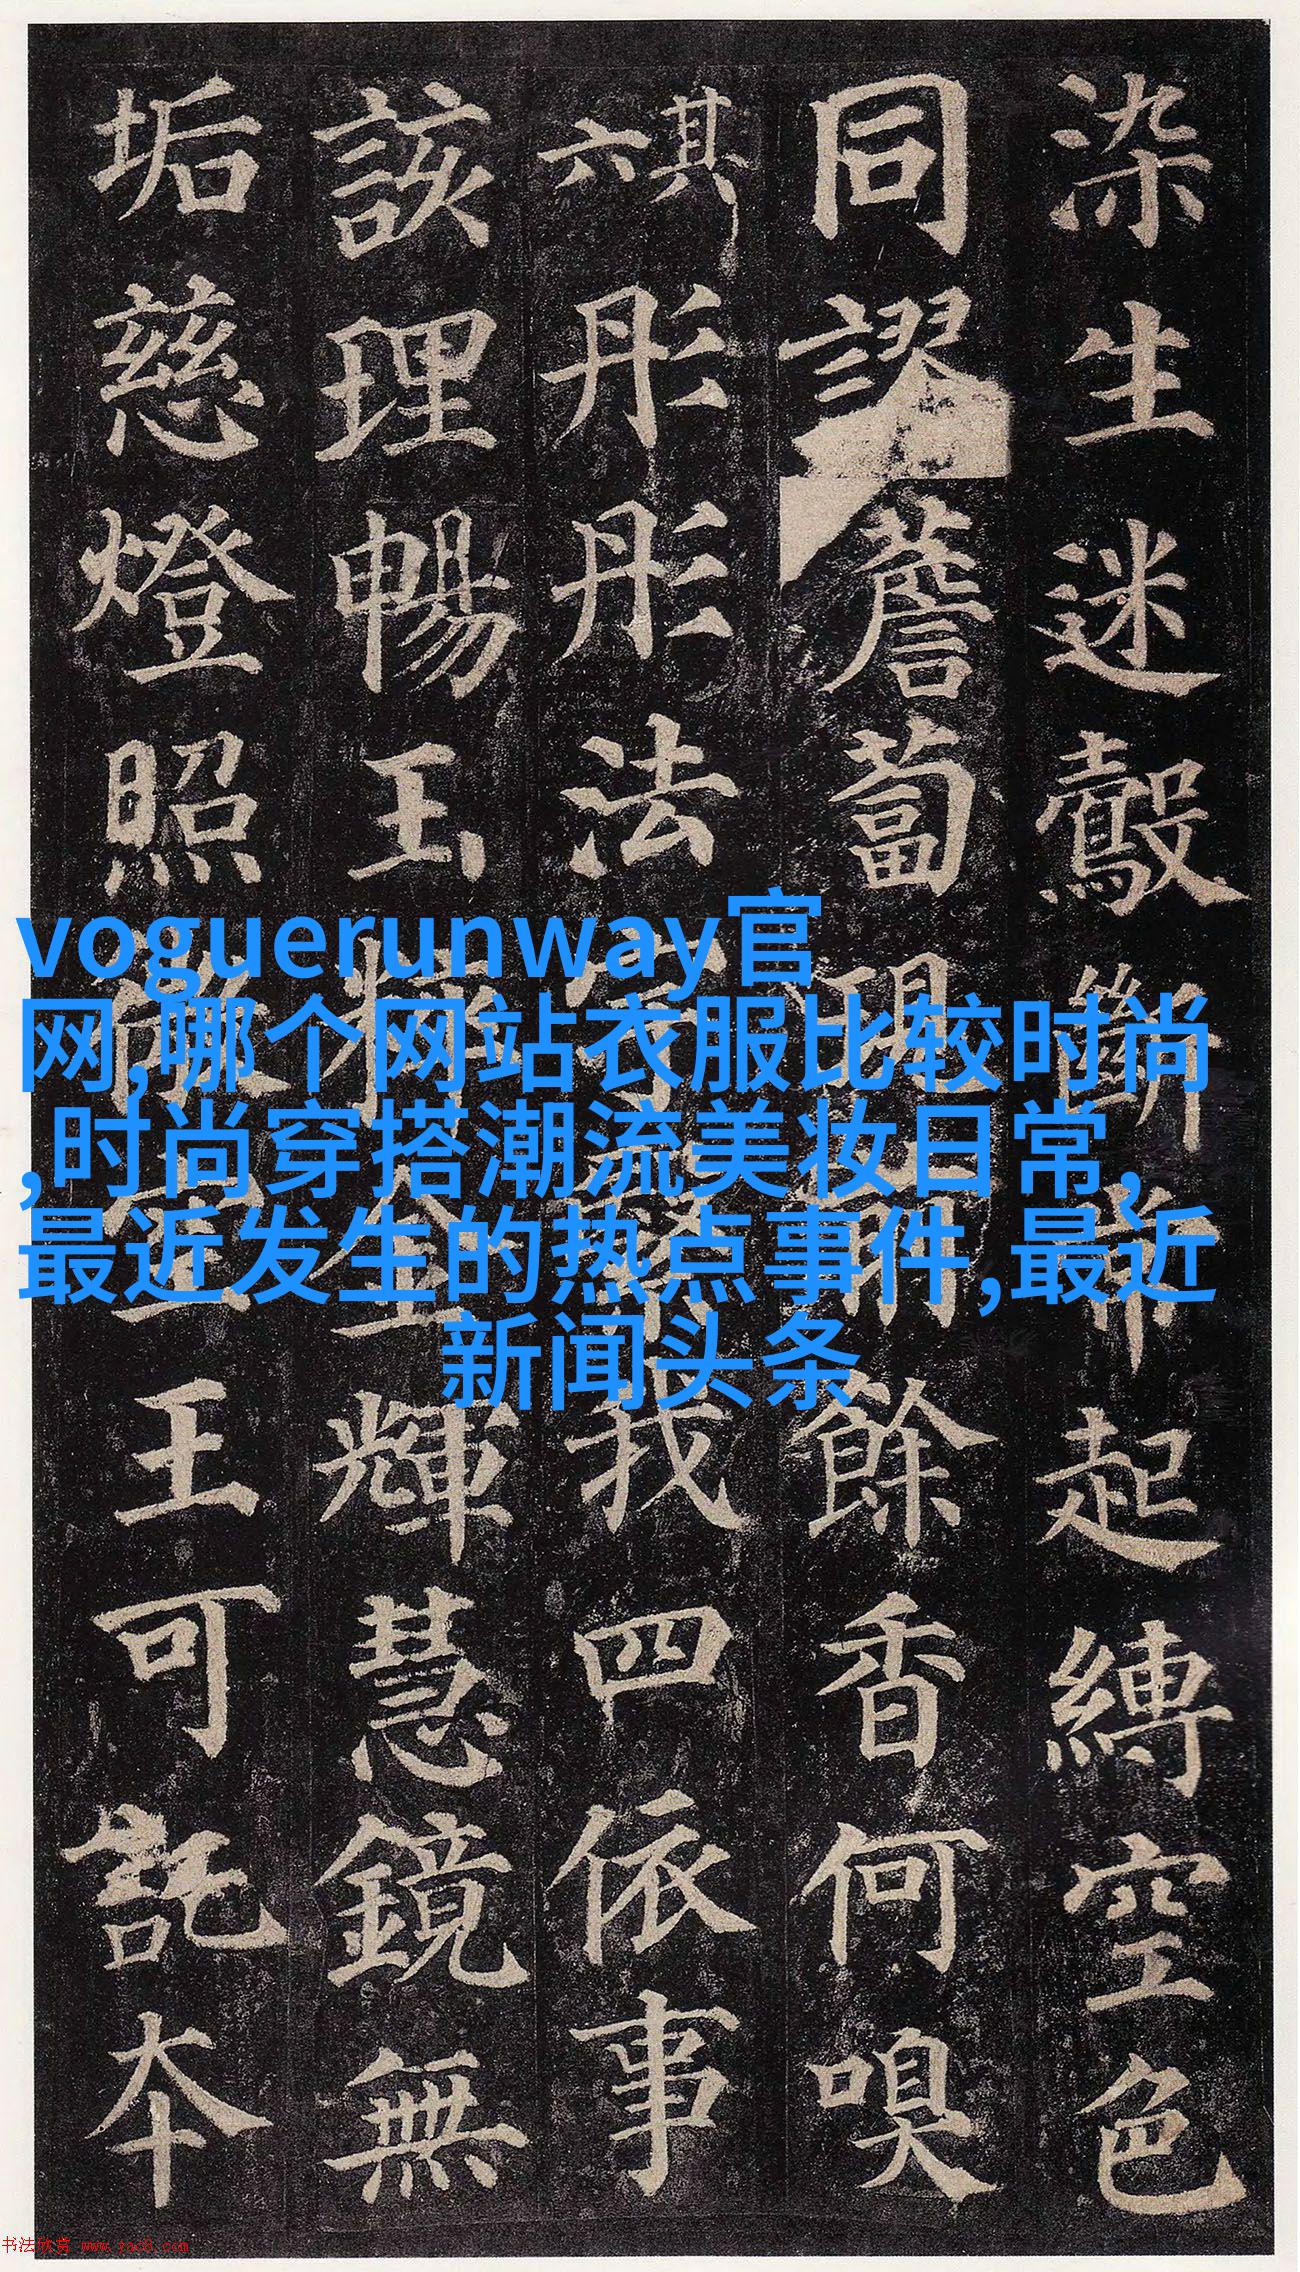 染生迷鷇斷常起縛空色
同謬薝蔔現餘香何嗅
其六
彤彤法宇繄我四依事
該理暢玉粹金輝慧鏡無
垢慈燈照微空王可託本
voguerunway官
网,哪个网站衣服比较时尚
,时尚穿搭潮流美妆日常,
最近发生的热点事件,最近
新闻头条
书法欣赏 www.yac8.com